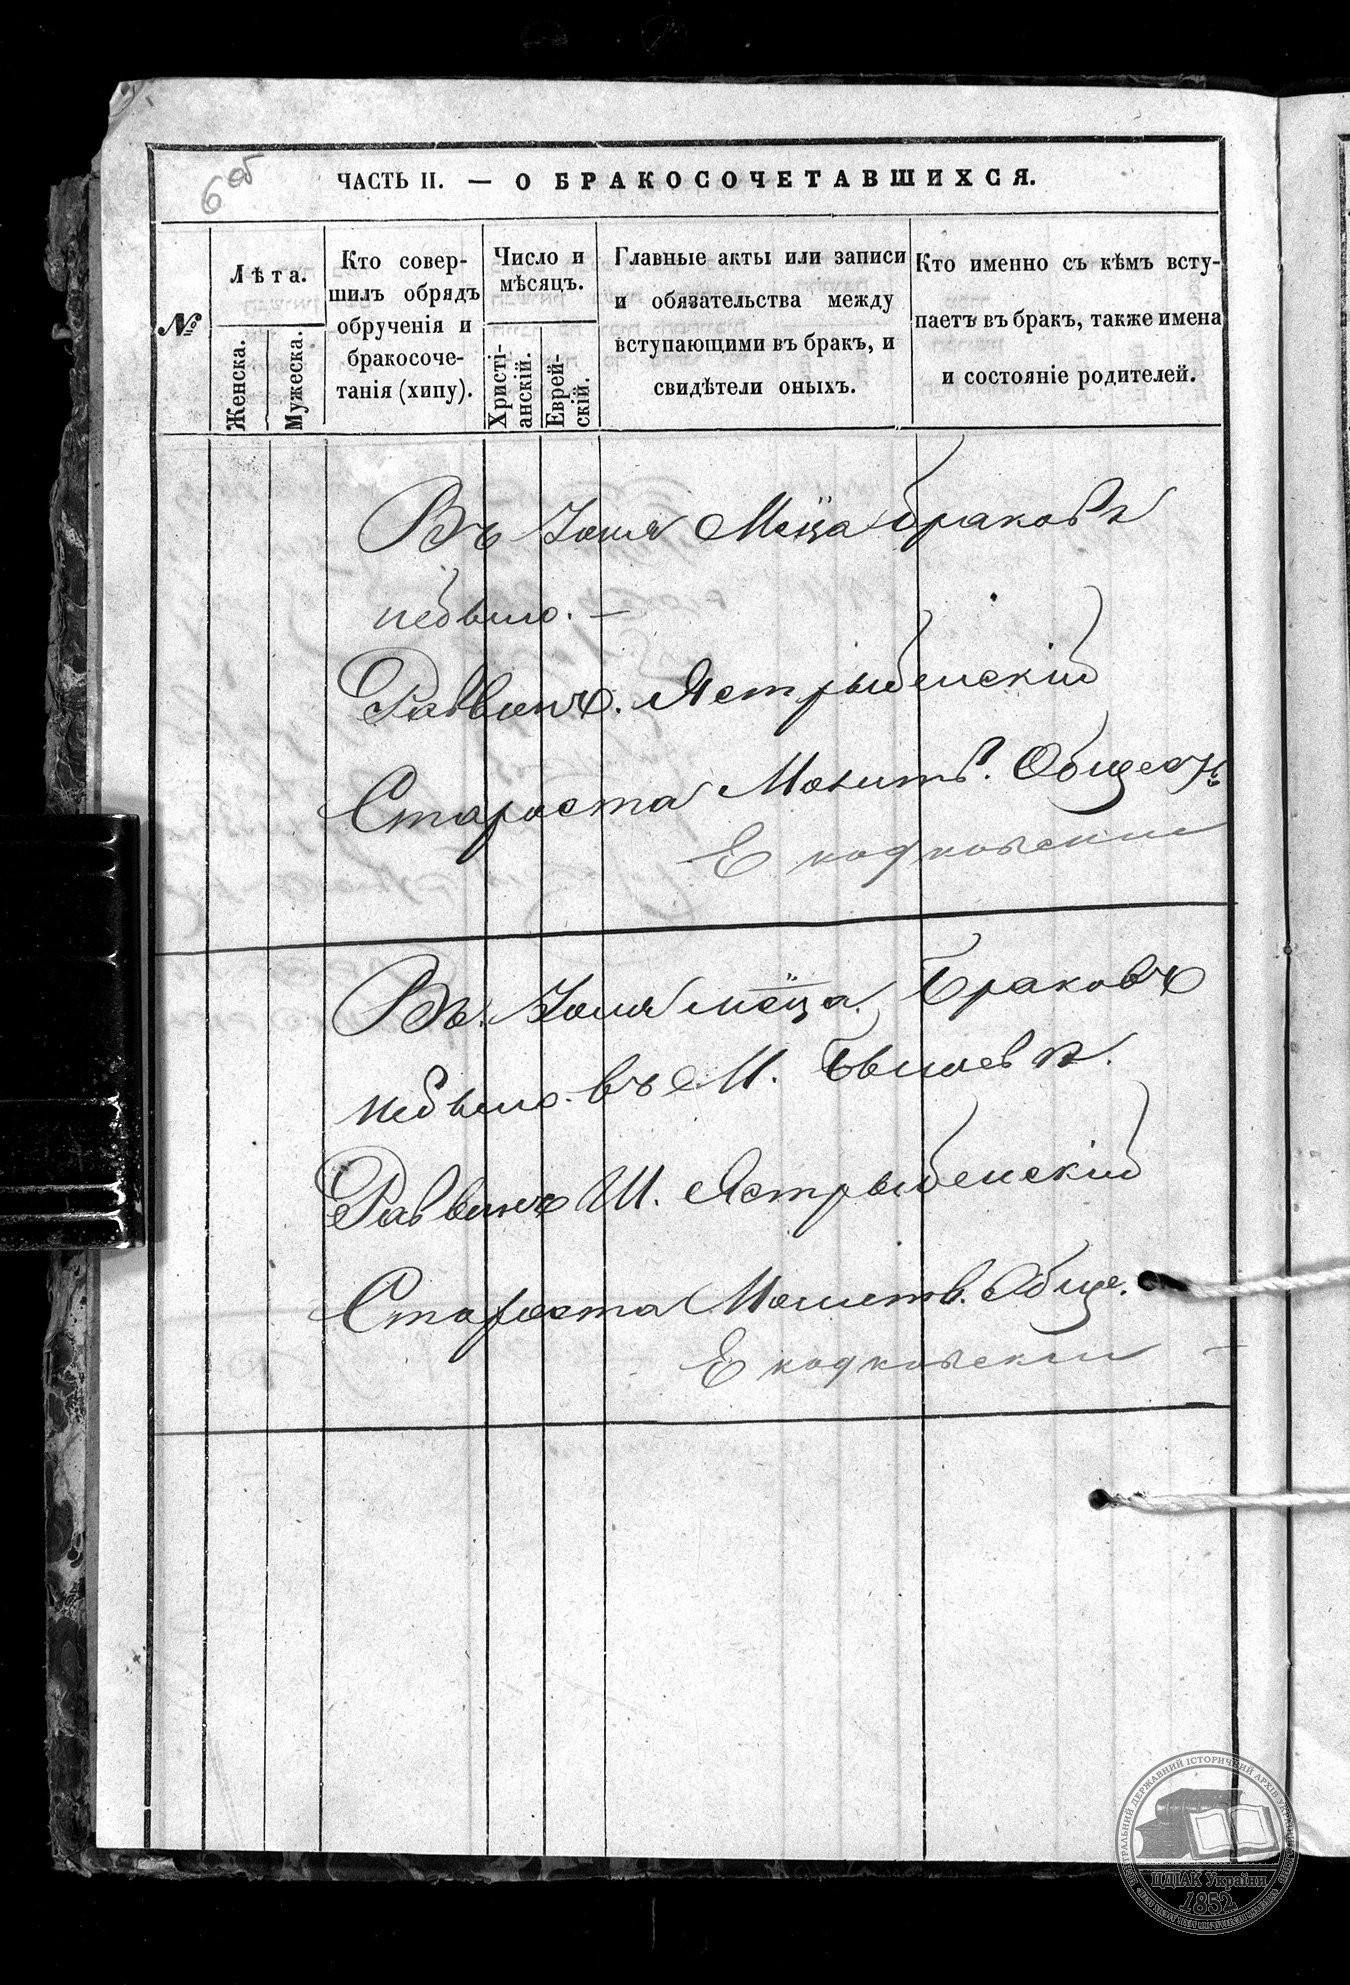 6 об
ЧАСТЬ II. — О БРАКОСОЧЕТАВШИХСЯ.
№
Лѣта.
Женска.
Мужеска.
Кто совер-
шилъ обрядъ
обрученія и
бракосоче-
танія (хипу).
Число и
мѣсяцъ.
Христі-
анскій.
Еврей-
скій.
Главные акты или записи
и обязательства между
вступающими въ брак, и
свидѣтели оныхъ.
Кто именно съ кѣмъ всту-
паетъ въ брак, также имена
и состояніе родителей.
Въ Іюня Мѣца браковъ
небыло. —
Раввинъ. Ястрыбенскій
Староста Молитв. Общес
Въ. Іюля мѣца. Браковъ
небыло. въ М.
Раввинъ Ш. Ястрыбенскій
Староста Молитв. Обще.
ЦЕНТРАЛЬНИЙ ДЕРЖАВНИЙ ІСТОРИЧНИЙ АРХІВ УКРАЇНИ
ЦДІАК України
1852